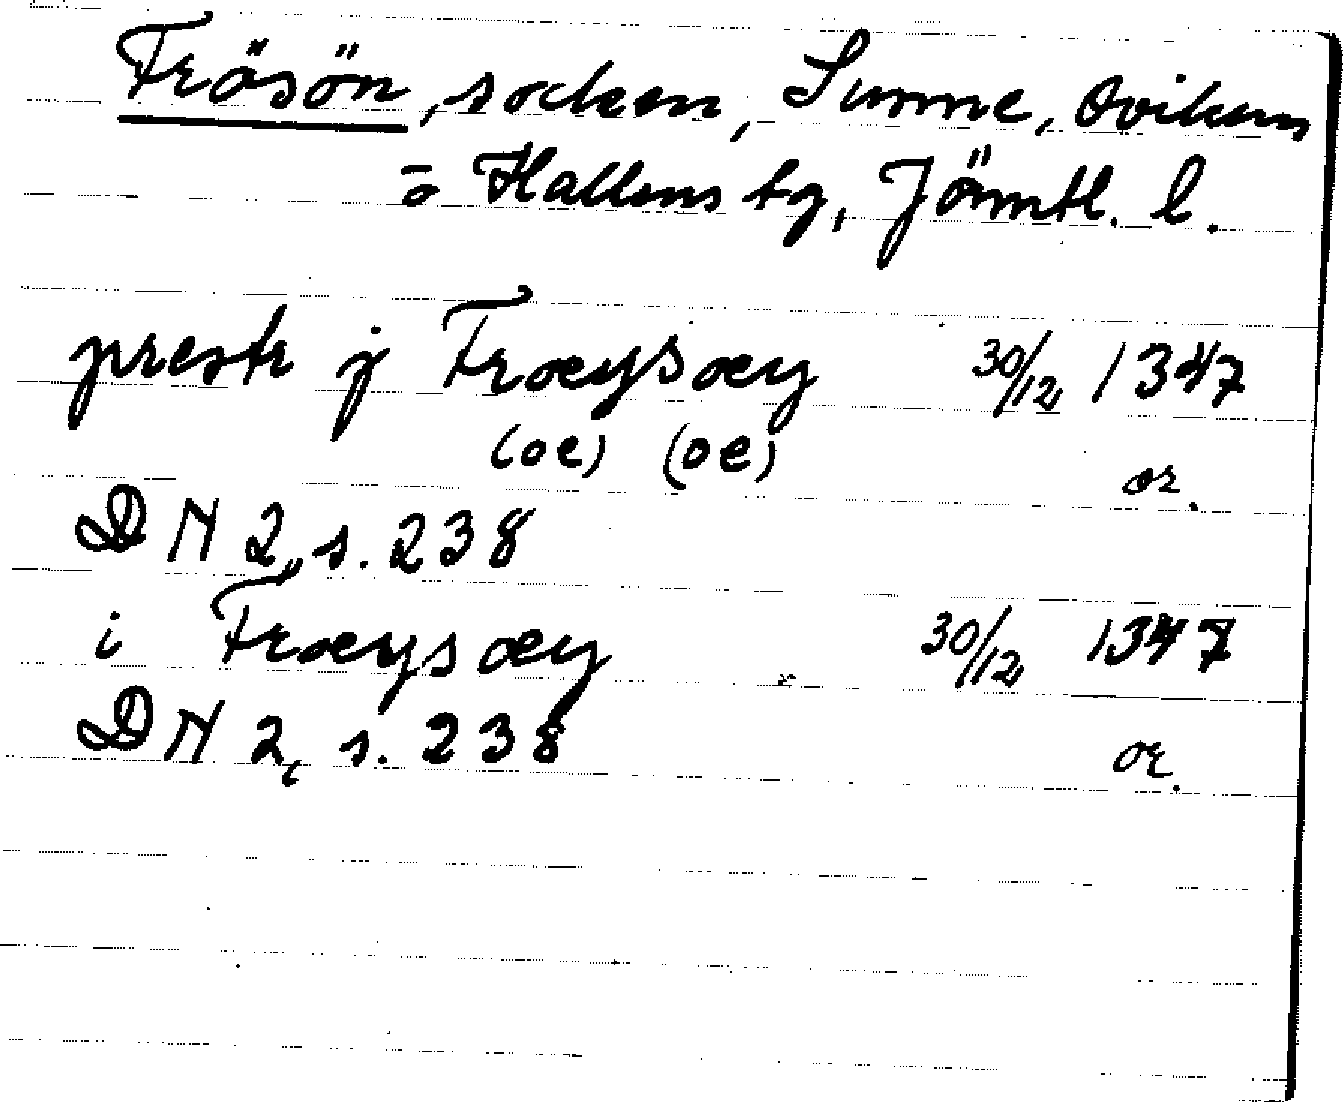 Frösön, socken, Sunne, Ovikens
o Hallens tg, Jämtl. l.
prestr j Frœysœy 30/12 1347
(oe) (oe) or.
DN 2, s. 238
i Frœysœy 30/12 1347
DN 2, s. 238 or.